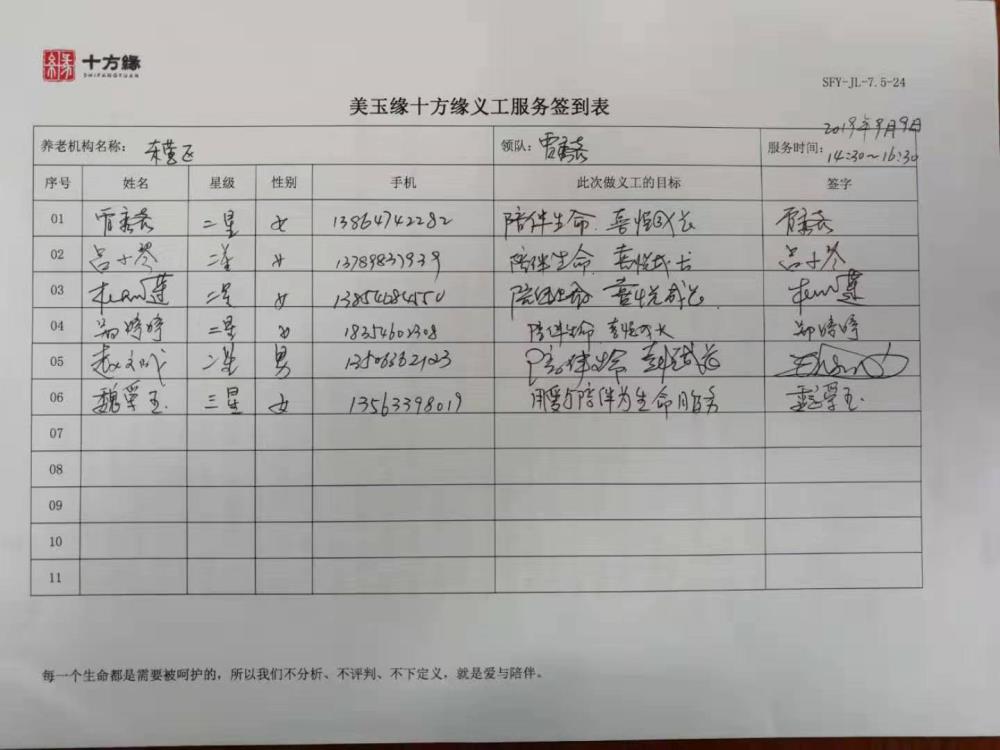 十方缘
SHIFANGYUAN
SFY-JL-7.5-24
美玉缘十方缘义工服务签到表
养老机构名称： 领队： 服务时间：2019年9月9日
14:30~16:30
序号 姓名 星级 性别 手机 此次做义工的目标 签字
01 二星 女 13864742282 陪伴生命 喜悦成长
02 吕小岑 二星 女 13789837939 陪伴生命 喜悦成长 吕小岑
03 二星 女 13854684550 陪伴生命 喜悦成长
04 郑婷婷 二星 女 18354602308 陪伴生命 喜悦成长 郑婷婷
05 二星 男 陪伴生命 喜悦成长
06 魏翠玉 三星 女 13563398019 用爱与陪伴为生命服务 魏翠玉
07
08
09
10
11
每一个生命都是需要被呵护的，所以我们不分析、不评判、不下定义，就是爱与陪伴。